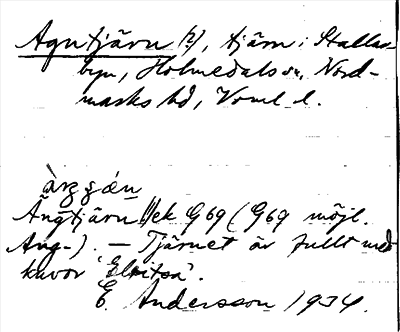 Agntjärn (?), tjärn i Stalla-
byn, Holmedals sn, Nord-
marks hd, Vrml l.
Ängtjärn ek G69 (G69 möjl.
Ang-). — Tjärnet är fullt med
kavor
E. Andersson 1934.